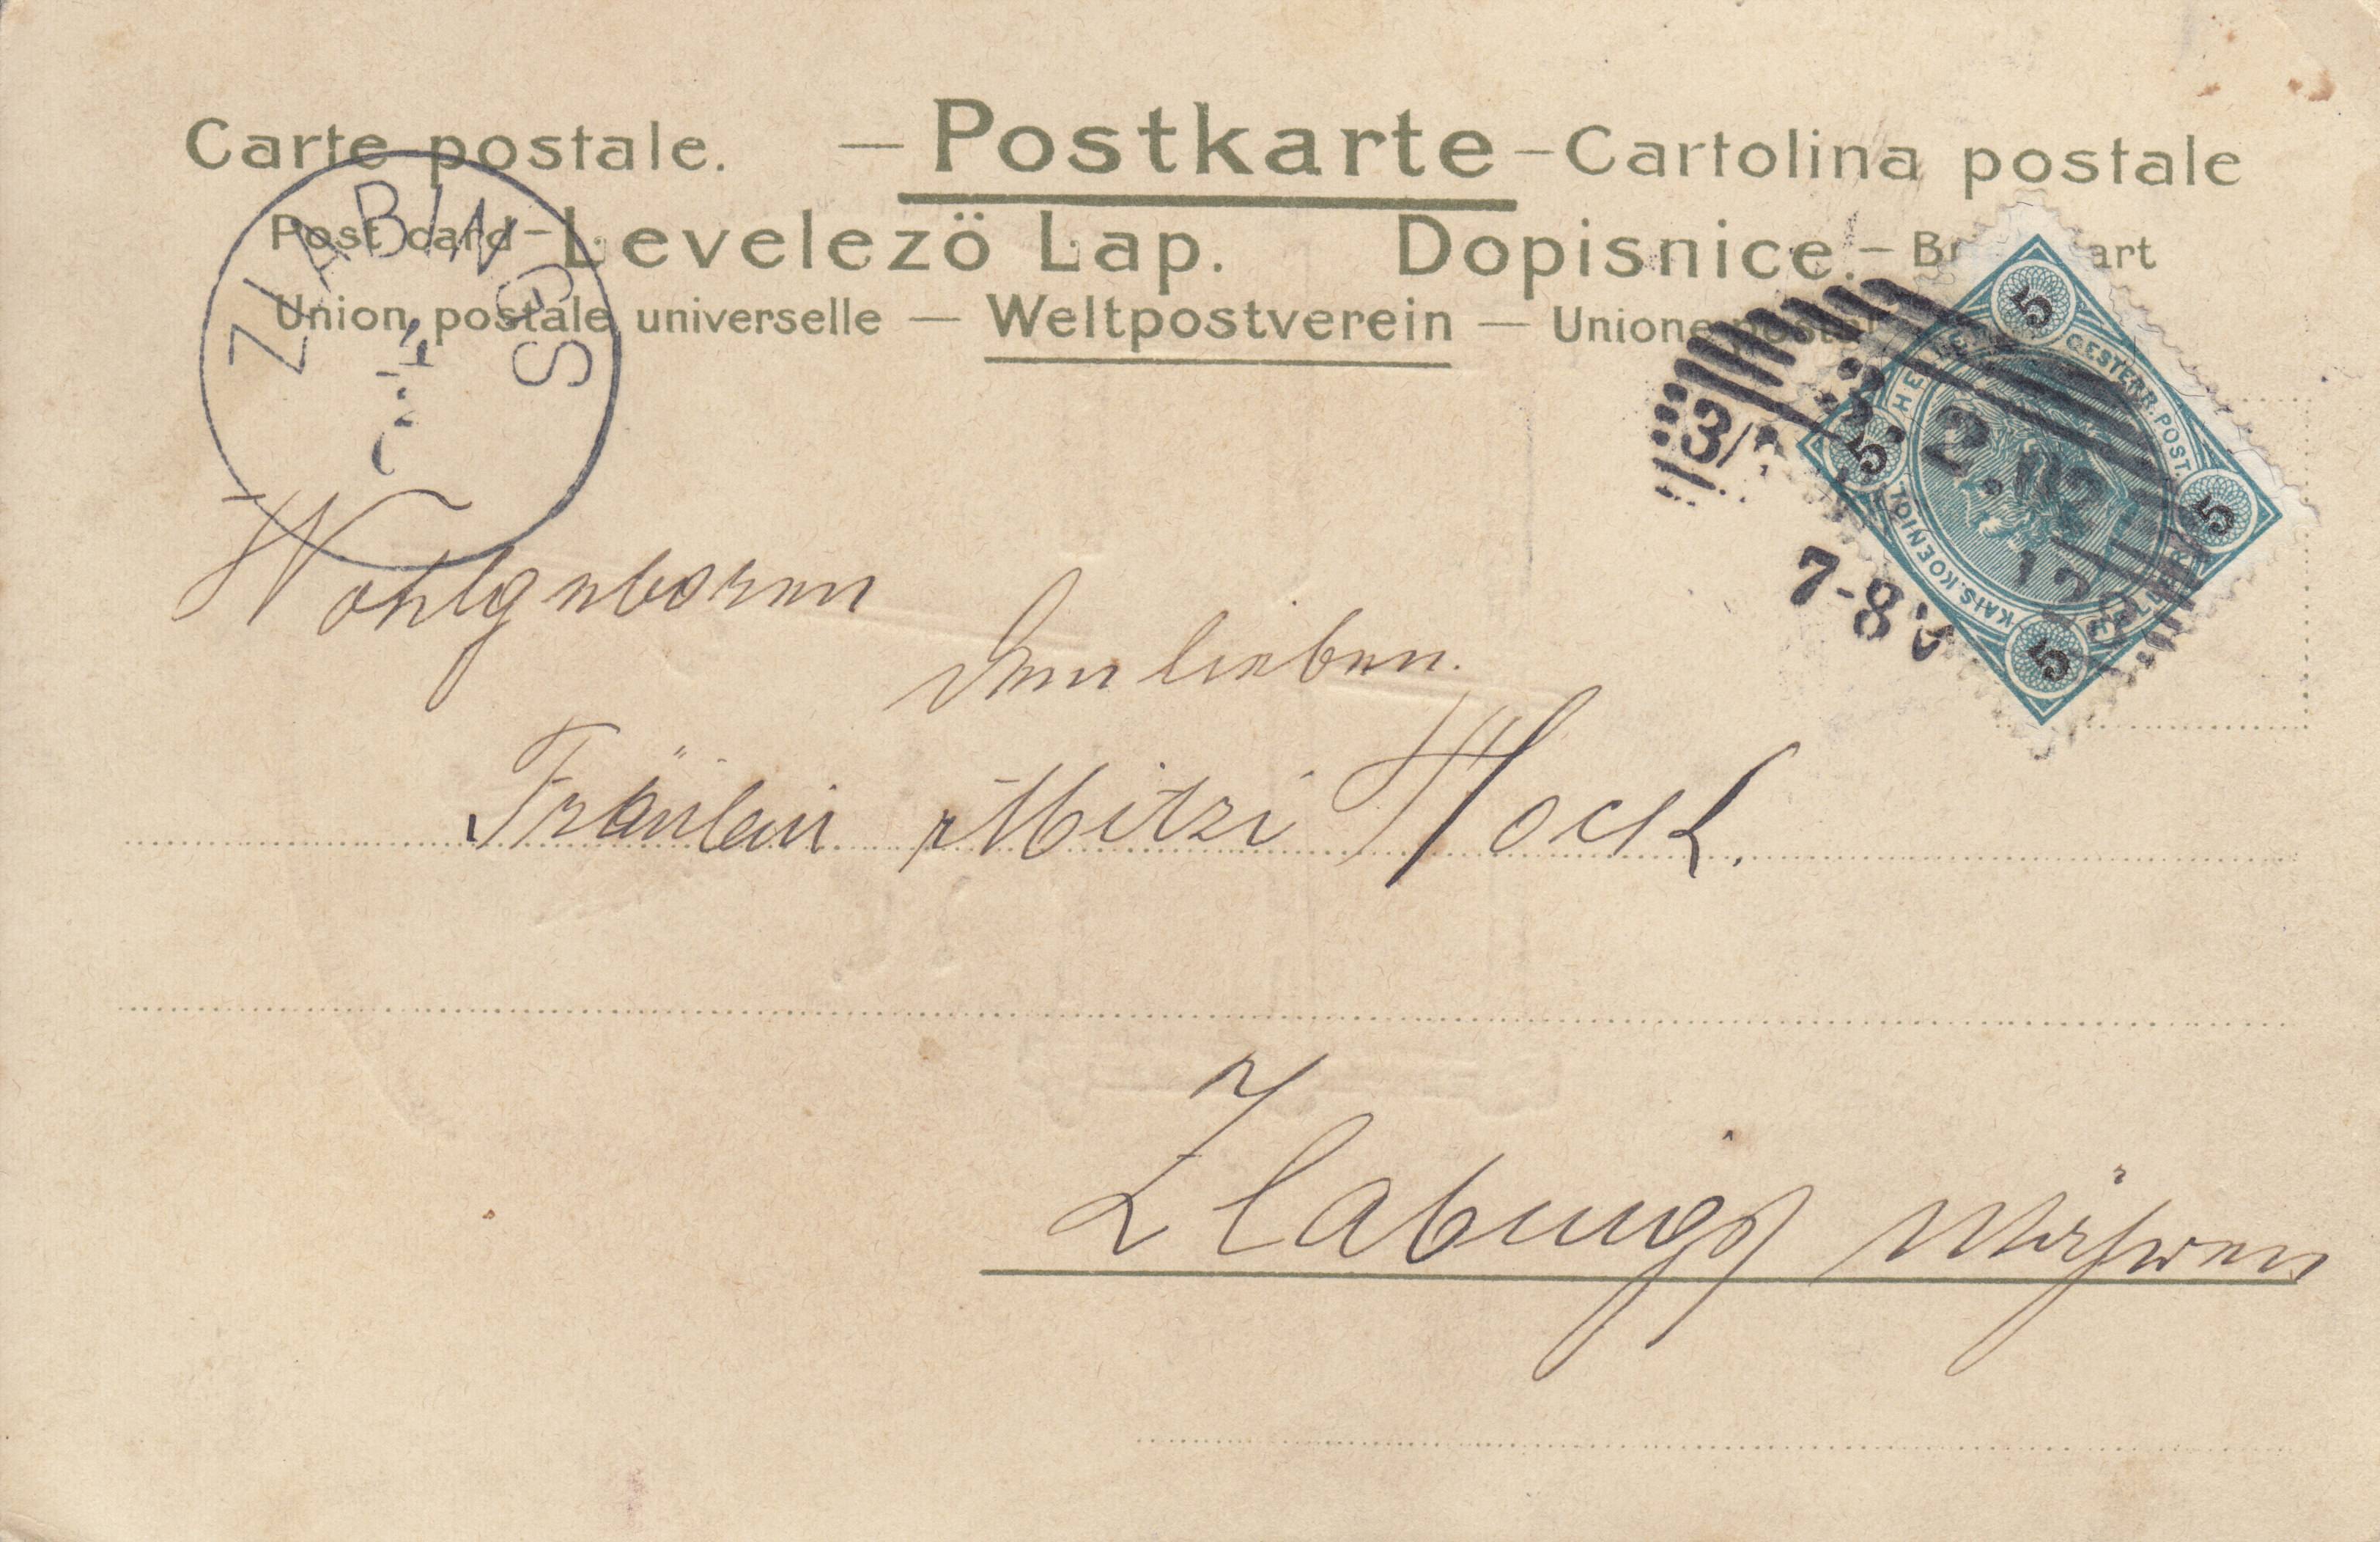 Carte postale. — Postkarte — Cartolina postale
Post card — Levelezö Lap. Dopisnice. — art
Union postale universelle — Weltpostverein — Unione
ZLABINGS
5 5 5 5
OESTERR. POST.
KAIS. KOENIGL
HELLER
3/1
2. 02
7-8
Wohlgeboren
dem lieben.
Fräulein Mitzi Hock.
Zlabings Mähren